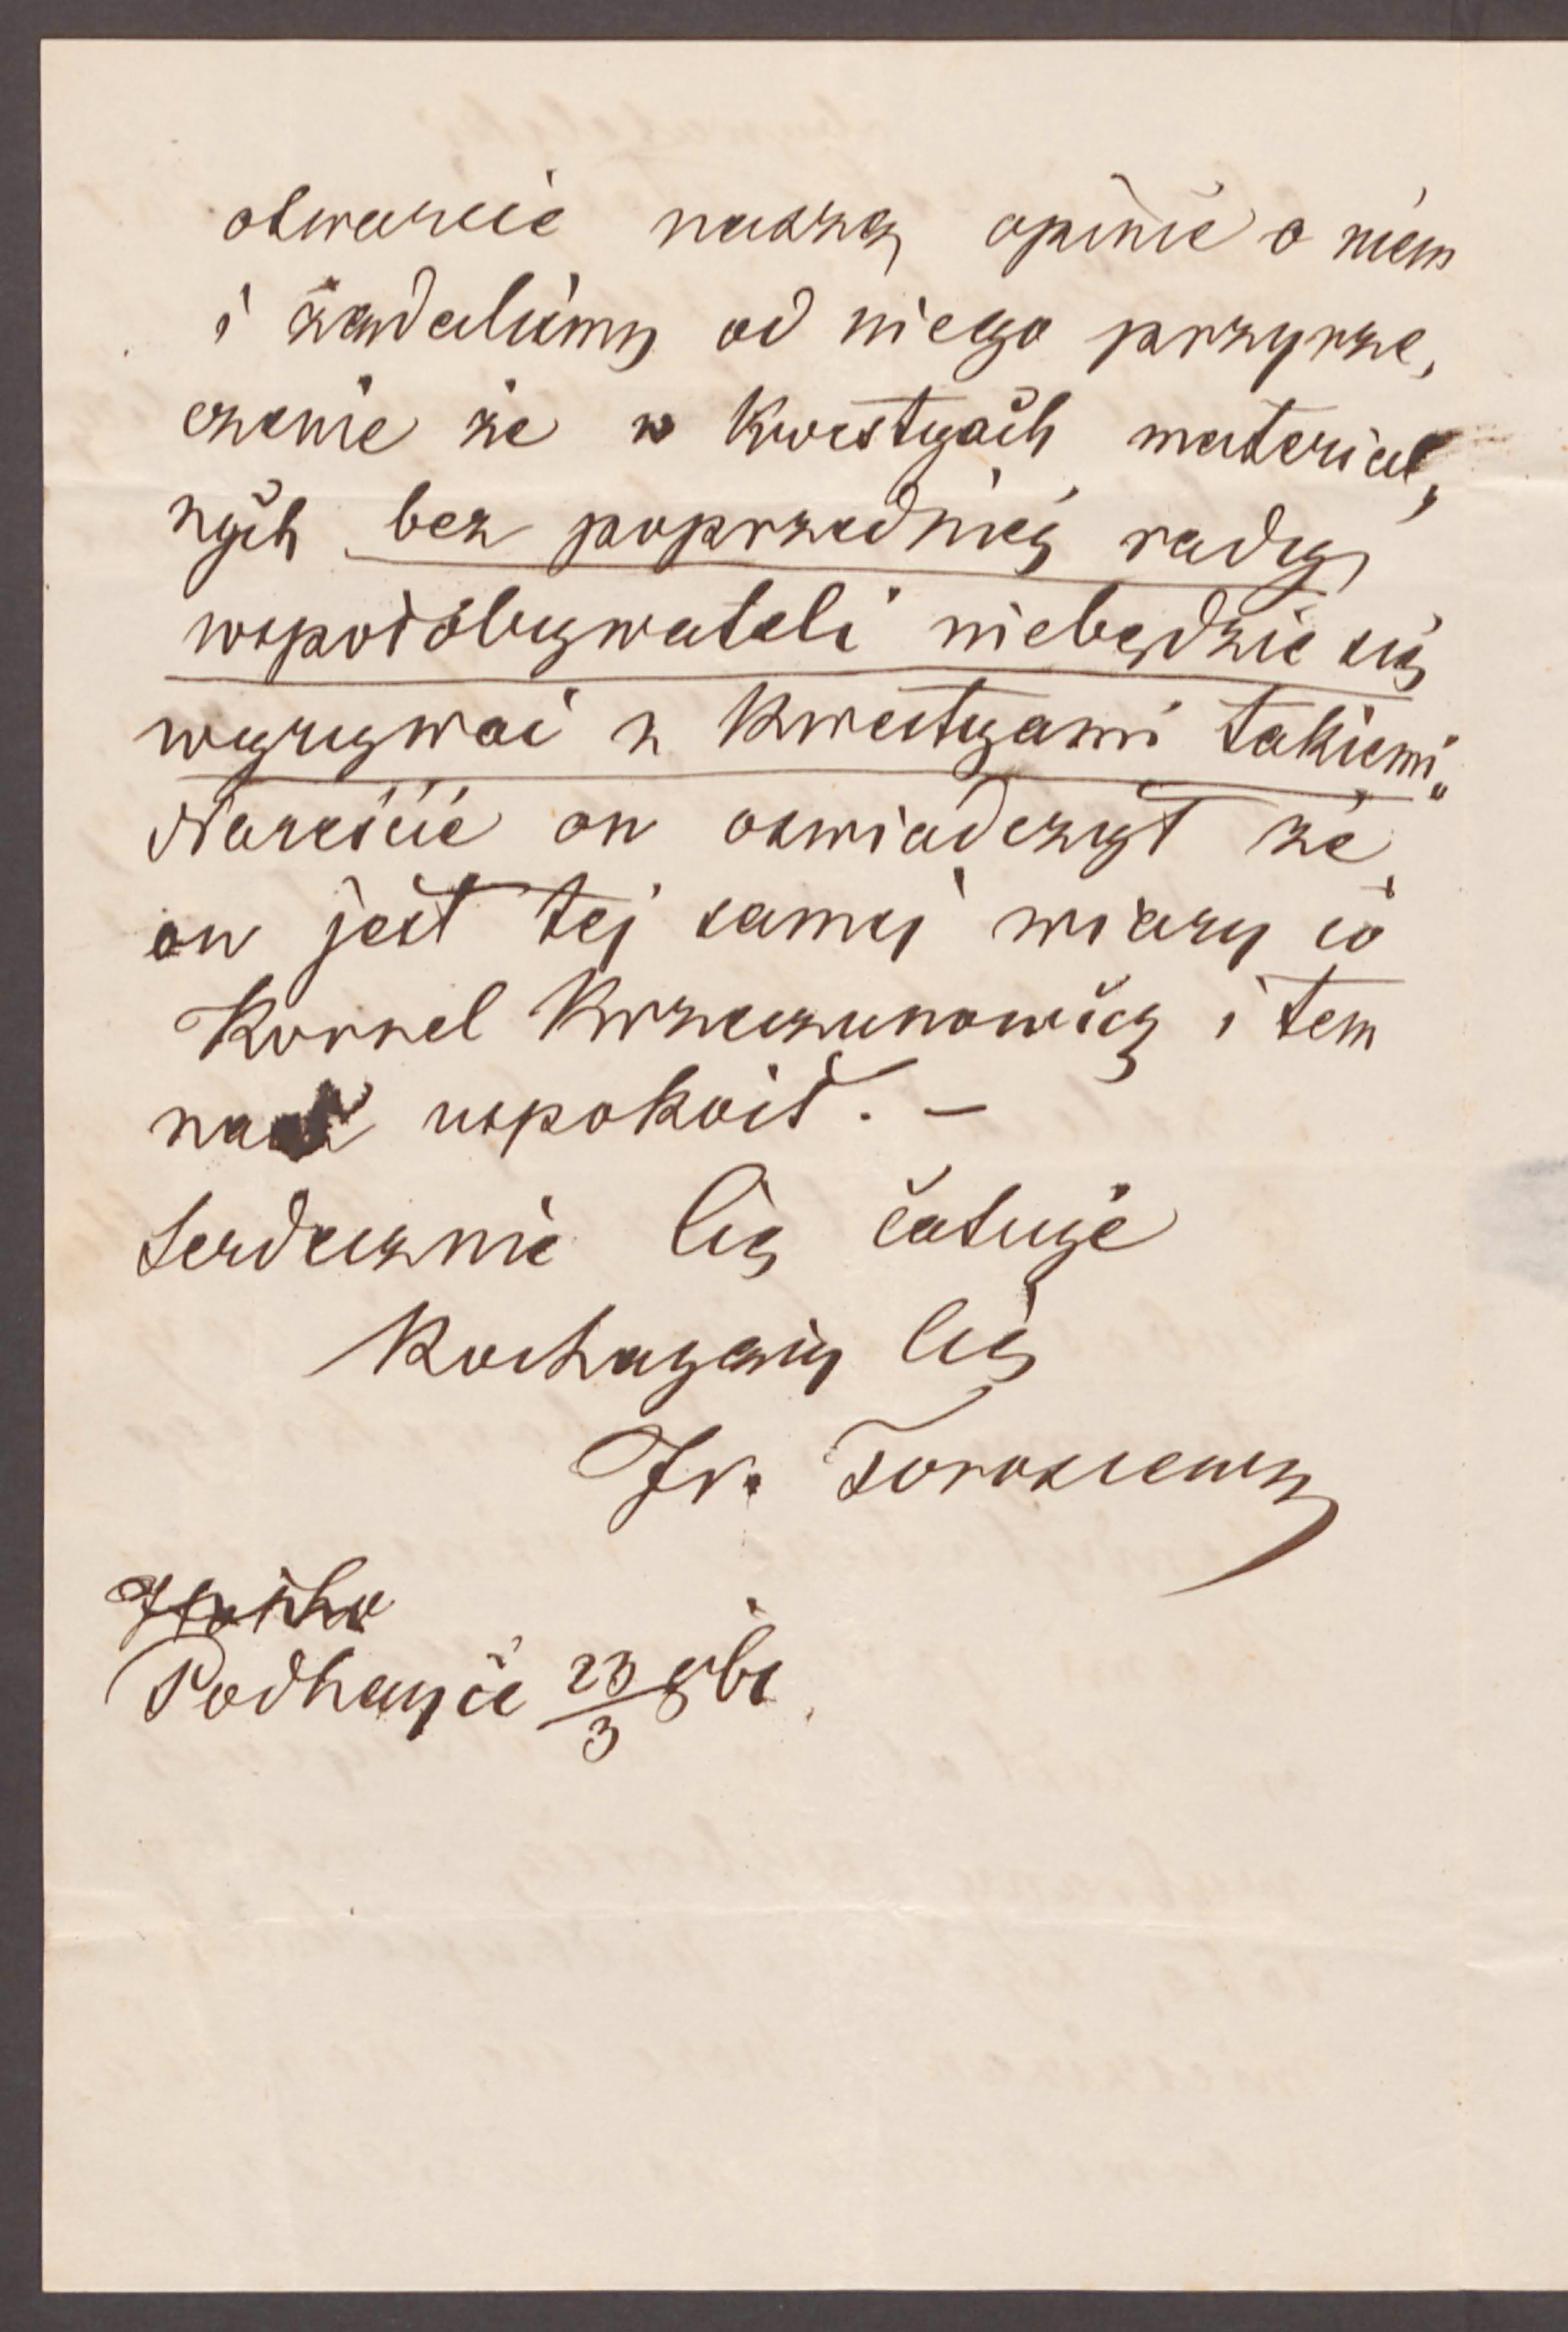 otwarcie naszą opinie o niem
i żądalismy od niego przyrze,
czenie że w kwestyach material,
nych bez poprzedniej rady
wspołobywateli niebędzie się
wyrywać z kwestyami takiemi„
Nareście on oswiadczył że
on jest tej samej wiary co
Kornel Krzeczunowicz i tem
nas uspokoił. –
Serdecznie Cię całuje
Kochający Cię
Fr. Torosiewicz
Podhayce 23/3